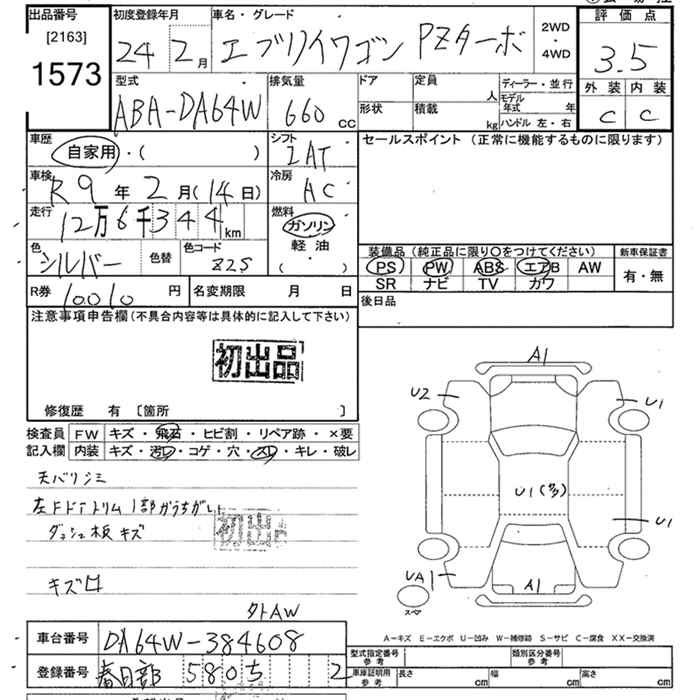 出品番号
[2163]
1573
初度登録年月
24 2月
車名・グレード
エブリイワゴン PZターボ
2WD
・
4WD
評価点
3.5
外装 内装
C C
型式
ABA-DA64W
排気量
660 cc
ドア
形状
定員 人
積載 kg
ディーラー・並行
モデル年式 年
ハンドル 左・右
車歴
自家用・( )
シフト
IAT
セールスポイント (正常に機能するものに限ります)
車検
R9年2月(14日)
冷房
AC
走行
12万6千344km
燃料
ガソリン
軽油
( ・ )
色
シルバー
色替
色コード
Z2S
装備品 (純正品に限り〇をつけてください)
PS PW ABS エアB AW
SR ナビ TV カワ
新車保証書
有・無
R券 10010円
名変期限 月 日
後日品
注意事項申告欄(不具合内容等は具体的に記入して下さい)
初出品
修復歴 有 〔箇所 〕
検査員記入欄
FW キズ・飛石・ヒビ割・リペア跡・×要
内装 キズ・汚レ・コゲ・穴・スレ・キレ・破レ
天バリシミ
左FドアトリムI部かうちがし
ダッシュ板キズ
初出品
キズ口
外AW
A1
U2
U1
U1(多)
U1
UA1
A1
スペア
A-キズ E-エクボ U-凹み W-補修跡 S-サビ C-腐食 XX-交換済
車台番号 DA64W-384608
登録番号 春日部 580ち 2
型式指定番号 参考
類別区分番号 参考
車庫証明用 参考
長さ cm 幅 cm 高さ cm